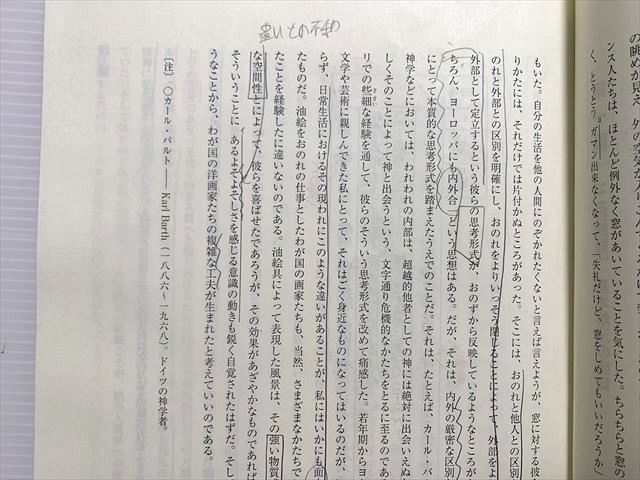 の眺めが見え、外の空
ンス人たちは、ほとんど例外なく窓があいていることを気にした。ちらちらと窓の
く、とうとう、ガマン出来なくなって、「失礼だけど、窓をしめてもいいだろうか」
もいた。自分の生活を他の人間にのぞかれたくないと言えば言えようが、窓に対する彼
りかたには、それだけでは片付かぬところがあった。そこには、おのれと他人との区別
のれと外部との区別を明確にし、おのれをよりいっそう閉じることによって、外部をよ
外部として定立するという彼らの思考形式が、おのずから反映しているようなところが
ちろん、ヨーロッパにも内外合一という思想はある。だが、それは、内外の厳密な区別
にとって本質的な思考形式を踏まえたうえでのことだ。それは、たとえば、カール・バ
神学などにおいては、われわれの内部は、超越的他者としての神には絶対に出会いえぬ
しくそのことによって神と出会うという、文字通り危機的なかたちをとるに至るのであ
リでの些細な経験を通して、彼らのそういう思考形式を改めて痛感した。若年期からヨ
文学や芸術に親しんできた私にとって、それはごく身近なものになってはいるのだが、
らず、日常生活におけるその現われにこのような違いがあることが、私にはいかにも面
たものだ。油絵をおのれの仕事としたわが国の画家たちも、当然、さまざまなかたちで
たことを経験したに違いないのである。油絵具によって表現した風景は、その強い物質
な空間性とによって、彼らを喜ばせたであろうが、その効果があざやかなものであれば
そういうことに、あるよそよそしさを感じる意識の動きも鋭く自覚されたはずだ。そし
うなことから、わが国の洋画家たちの複雑な工夫が生まれたと考えていいのである。
〔注〕 〇カール・バルト——Karl Barth（一八八六〜一九六八）。ドイツの神学者。